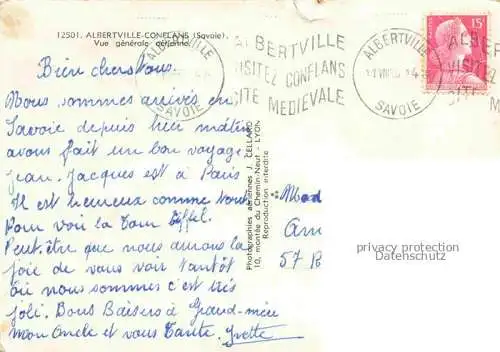 12501. ALBERTVILLE-CONFLANS (Savoie).
Vue générale aérienne.
ALBERTVILLE
SAVOIE
ALBERTVILLE
VISITEZ CONFLANS
CITE MEDIEVALE
ALBERTVILLE
SAVOIE
15F
ALBER
VISITEZ
Bien chers tous.
Nous sommes arrivés en
Savoie depuis hier matin
avons fait un bon voyage
jean. Jacques est à Paris
Il est heureux comme tout
Pour voir la Tour Eiffel.
Peut. être que nous aurons la
joie de vous voir tantôt
où nous sommes c'est très
joli. Bons Baisers à Grand-mère
mon Oncle et vous Tante. Yvette
Photographies aériennes J. CELLARD
10, montée du Chemin-Neuf - LYON
Reproduction interdite
57
privacy protection
Datenschutz